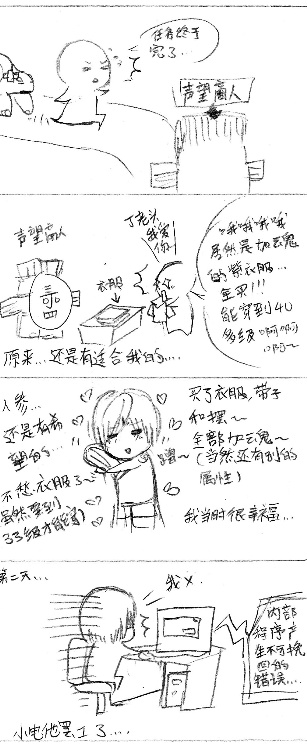 任务终于
完了...
声望商人
声望商人
三哥
四
衣服
丁老头,
我爱
你!
哦哦哦哦
居然是加云鬼
的紫衣服...
坐来!!!
能穿到40
多级啊啊
啊~
原来...还是有适合我的S....
人参...
还是有希
望的S...
不愁衣服了~
虽然要到
33级才能穿)
蹭~
买了衣服,带子
和摆~
全部加云鬼~
(当然还有别的
属性)
我当时很幸福...
第二天...
我×.
内部
程序产
生不可挽
回的
错误...
小电他罢工了....